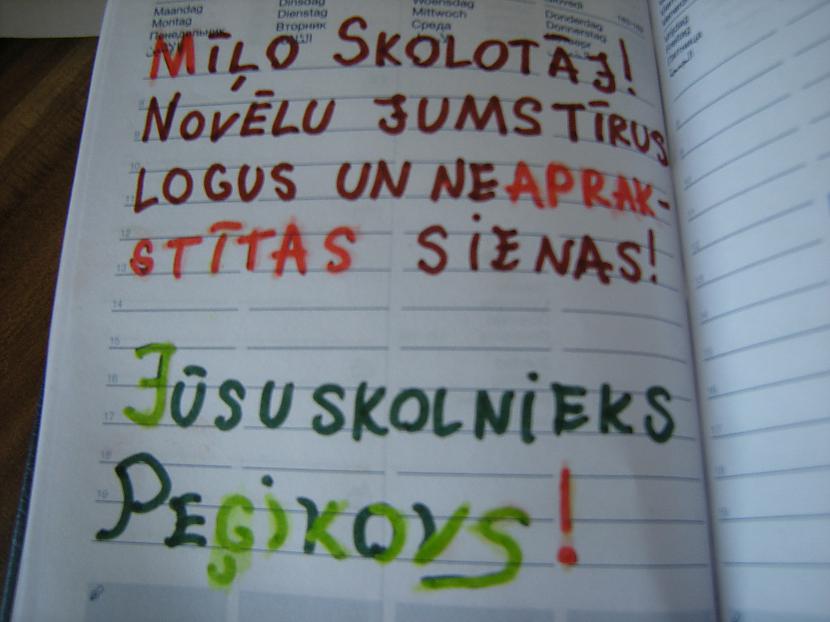 Maandag
Montag
Понедельник
Dinsdag
Dienstag
Вторник
Woensdag
Mittwoch
Среда
Donderdag
Donnerstag
MĪĻO SKOLOTĀJ!
NOVĒLU JUMS TĪRUS
LOGUS UN NEAPRAK-
STĪTAS SIENAS!
14
15
JŪSU SKOLNIEKS
16
17
18
19
PEĢIKOVS!